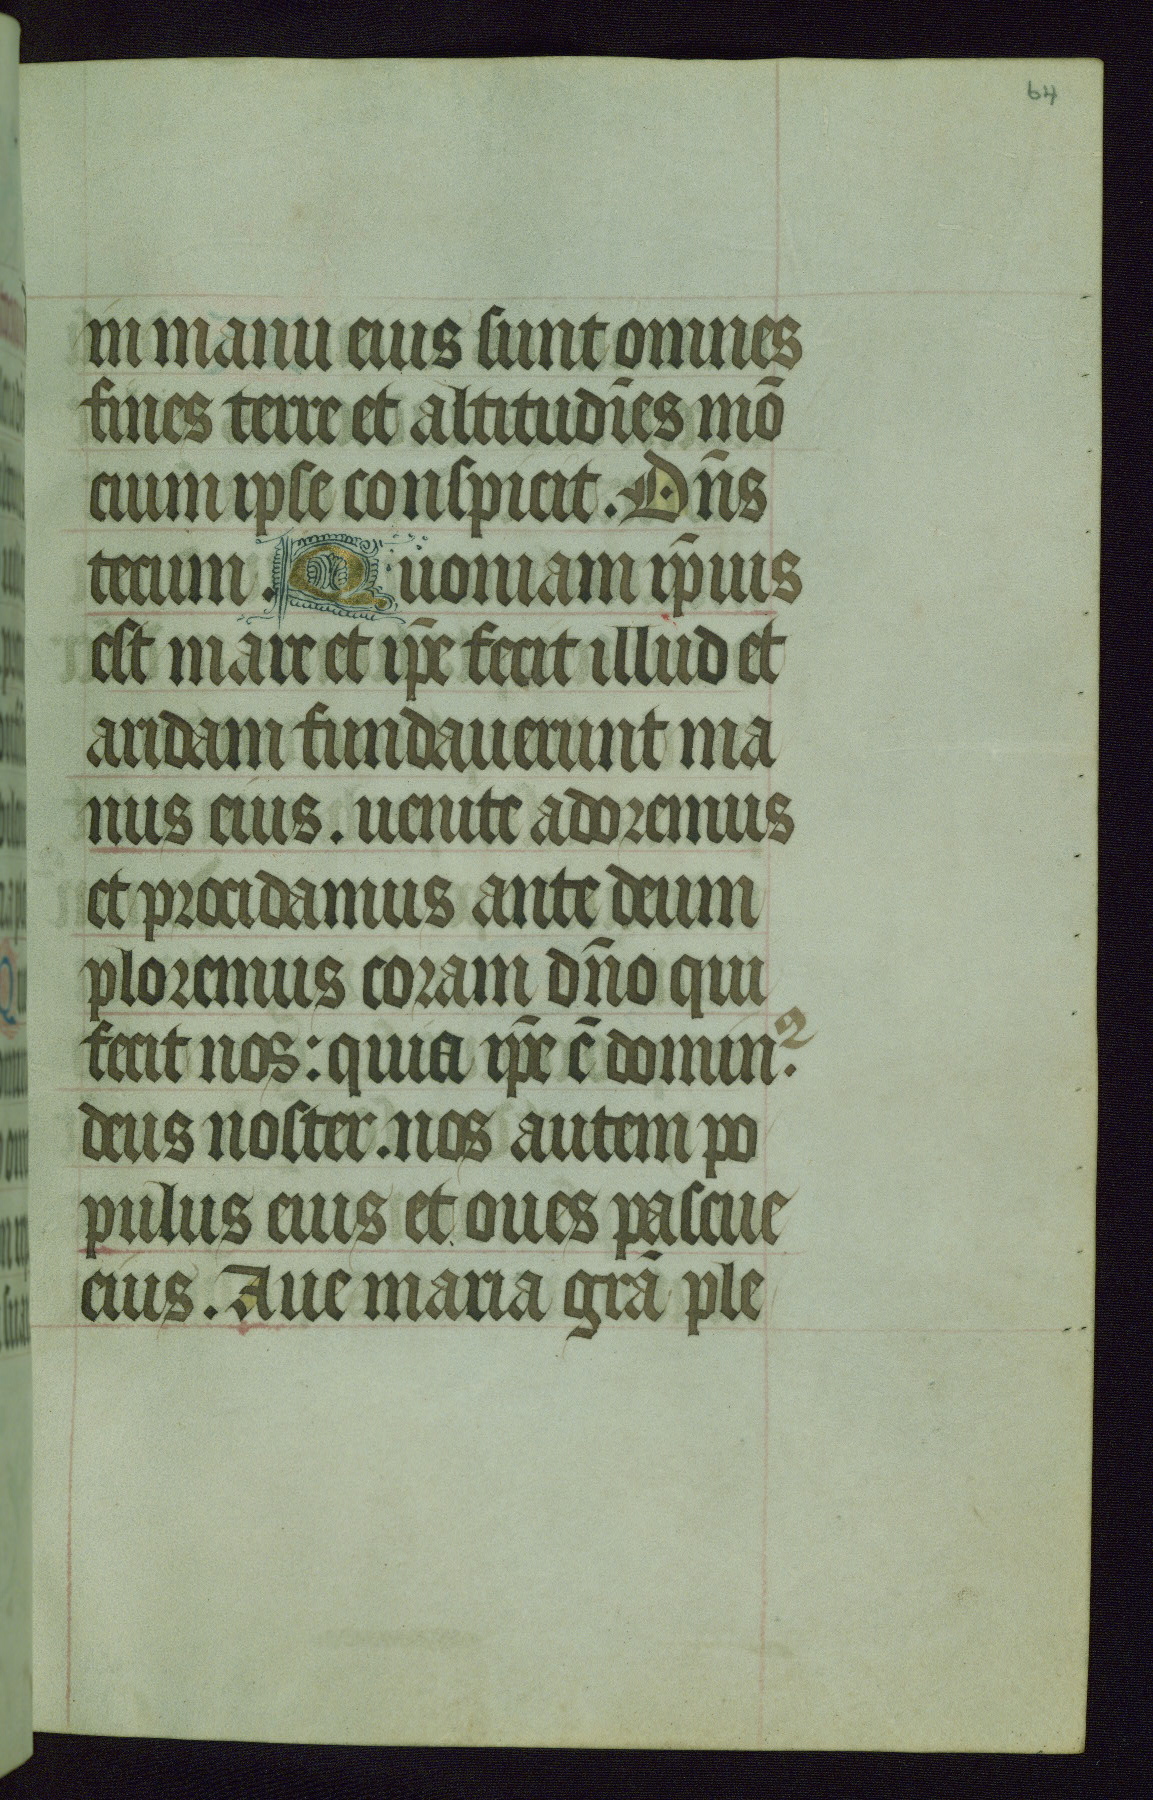 64
in manu eius sunt omnes
fines terre et altitudīes mō
cium ipse conspicit. Dn̄s
tecum. Quoniam ip̄ius
est mare et ip̄e fecit illud et
aridam fundauerunt ma
nus eius. uenite adoremus
et procidamus ante deum
ploremus coram dn̄o qui
fecit nos: quia ip̄e ē domin⁹.
deus noster. nos autem po
pulus eius et oues pascue
eius. Aue maria grā ple